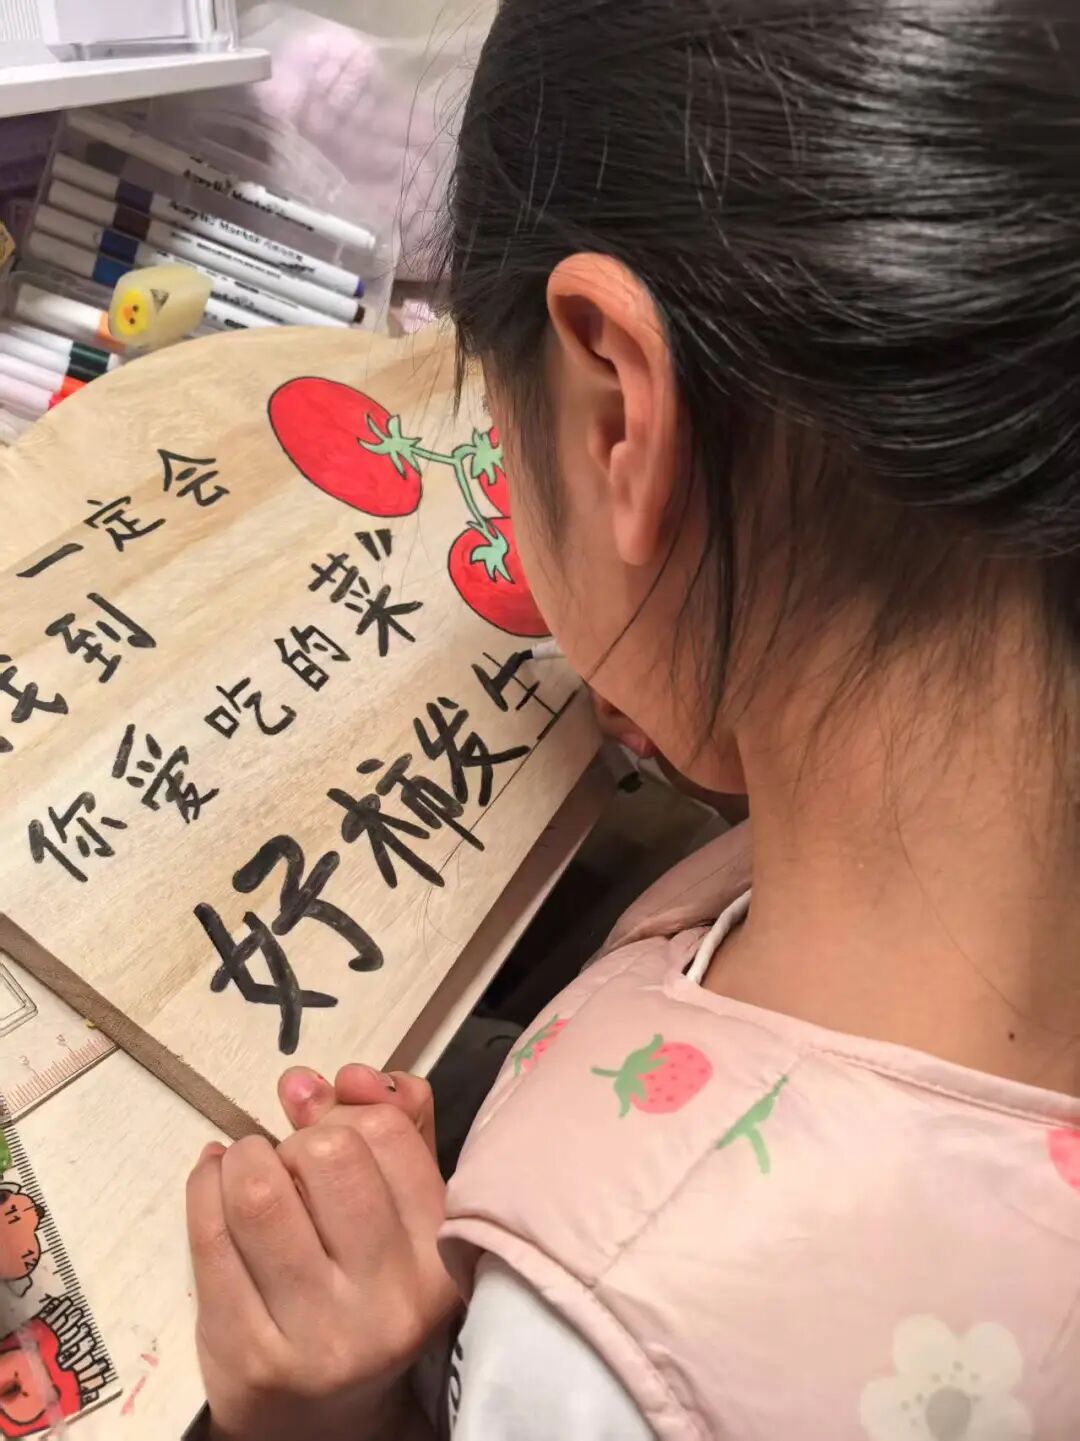 一定会
找到
你爱吃的菜"
好柿发生
Acrylic Marker
Acrylic Marker